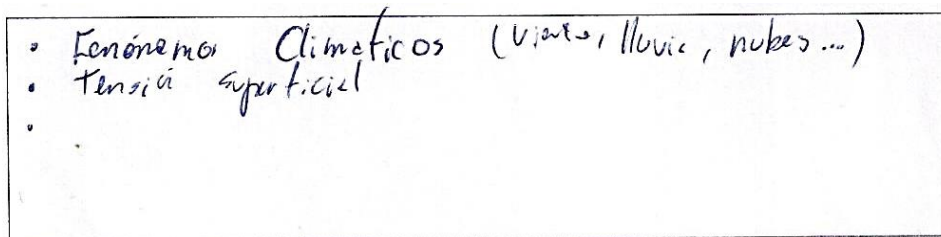 • Fenónemos Climaticos (Viento, lluvia, nubes...)
• Tensión superficial
•